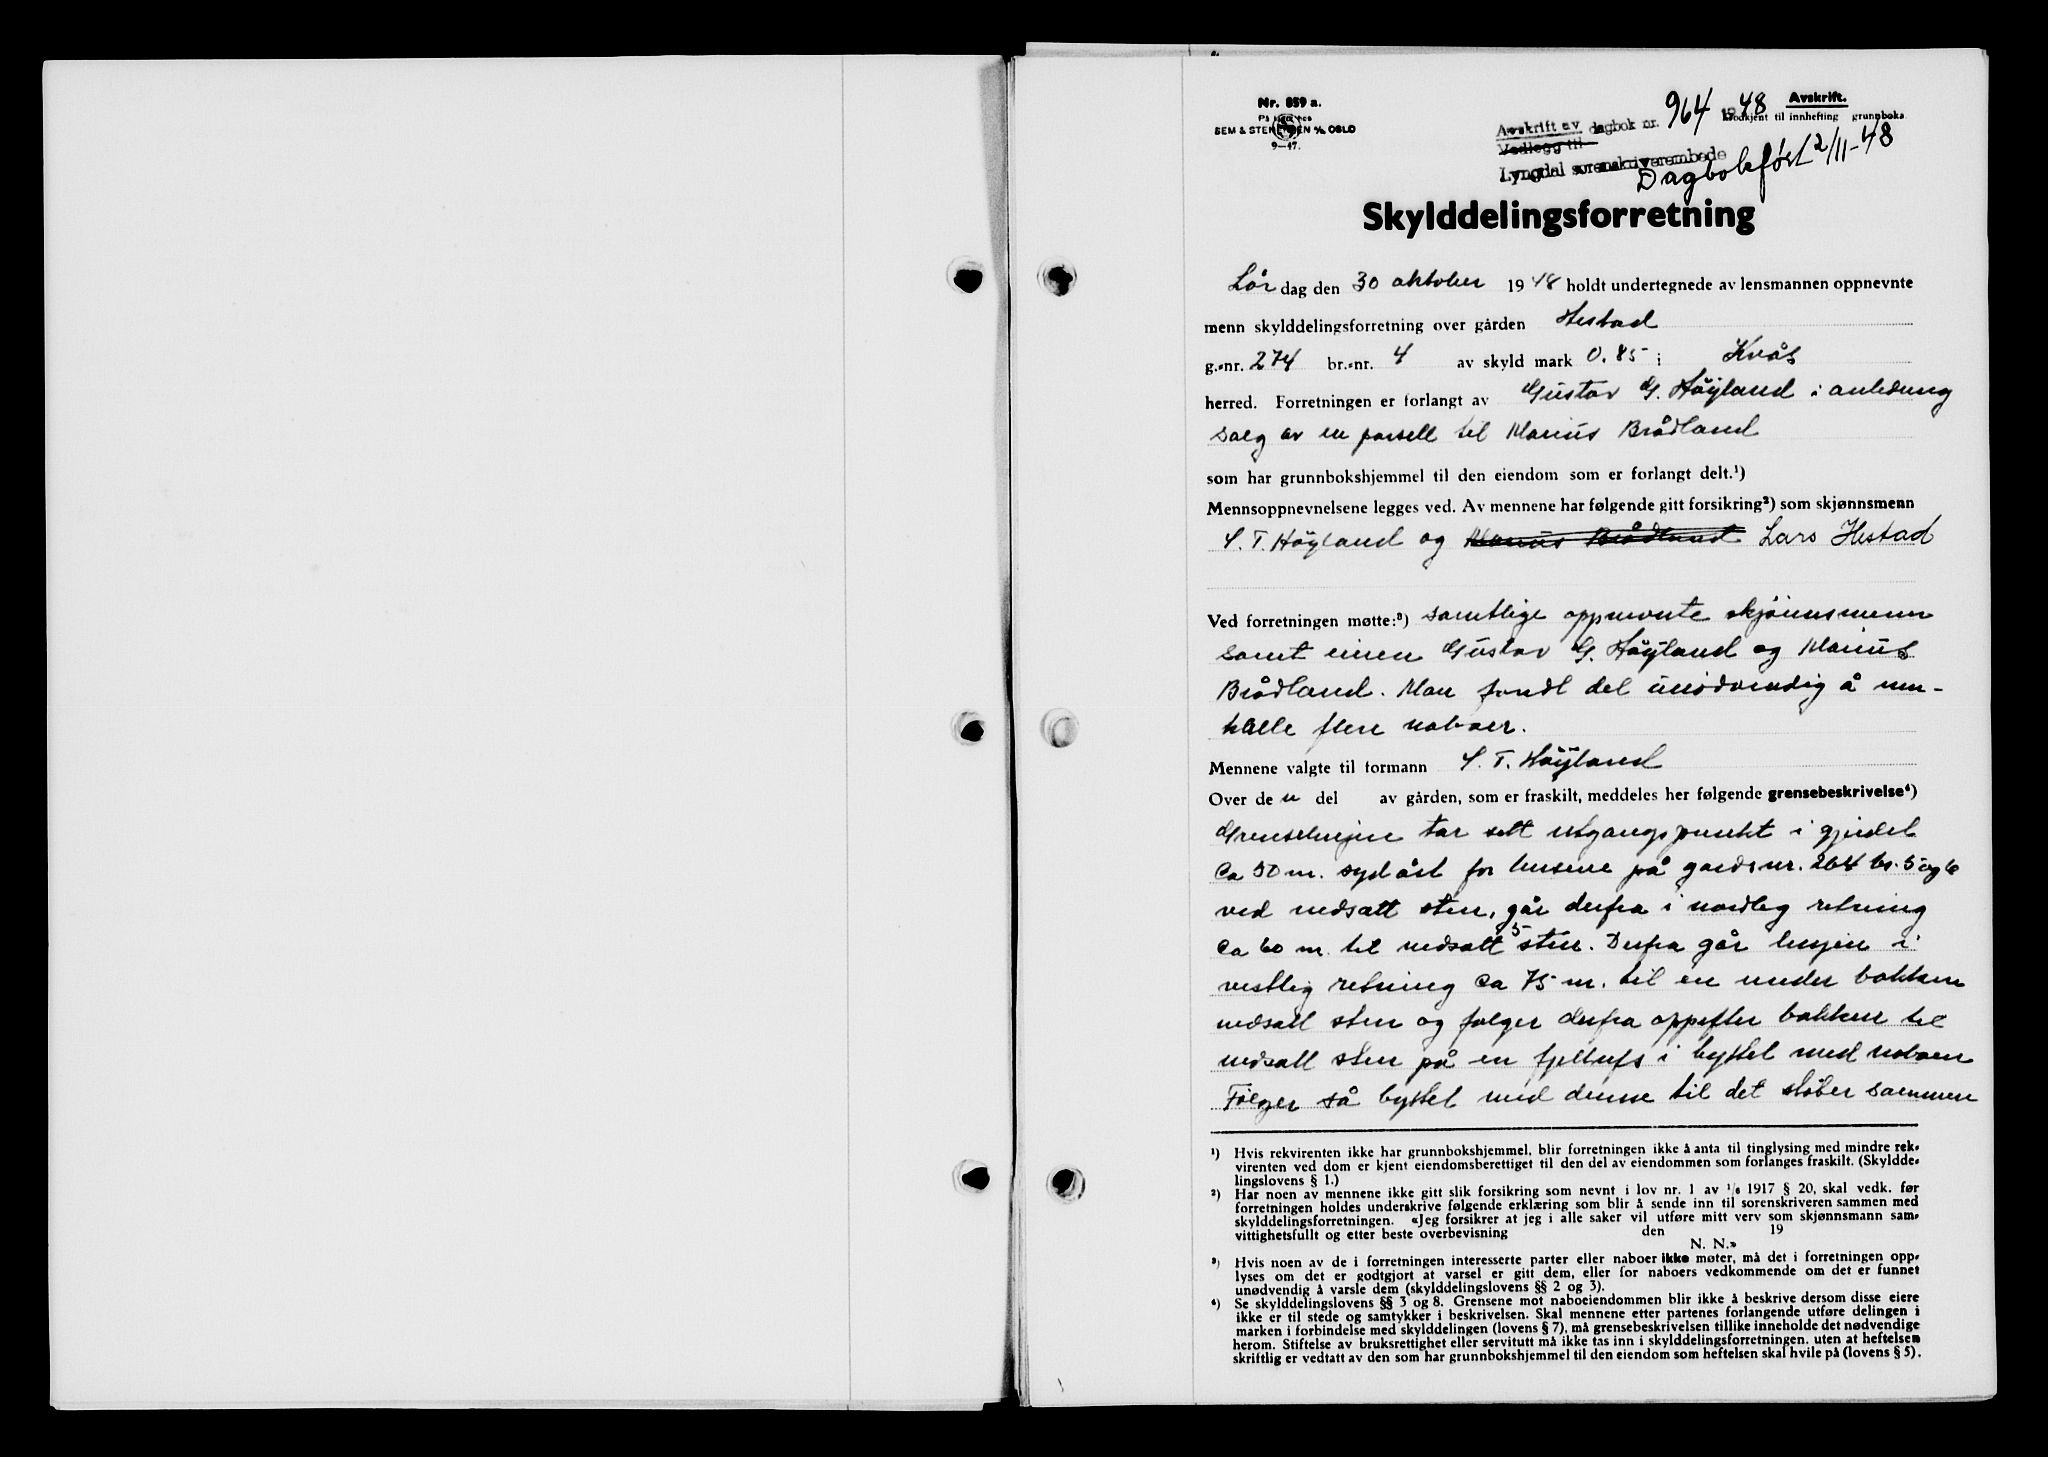 Nr. 859 a.
SEM & STENERSEN A/S OSLO
9—47.
Avskrift av dagbok nr. 964 19 48
Vedlegg til
Lyngdal sorenskriverembede
Avskrift.
Godkjent til innhefting grunnboka
Dagbokført 2/11-48
Skylddelingsforretning
Lør dag den 30 oktober 1948 holdt undertegnede av lensmannen oppnevnte
menn skylddelingsforretning over gården Hestad
g.-nr. 274 br.-nr. 4 av skyld mark 0.85 i Kvås
herred. Forretningen er forlangt av Gustav G. Höyland i anledning
salg av en parsell til Marius Brådland
som har grunnbokshjemmel til den eiendom som er forlangt delt.¹)
Mennsoppnevnelsene legges ved. Av mennene har følgende gitt forsikring²) som skjønnsmenn
S. T. Höyland og Marius Brådland Lars Hestad
Ved forretningen møtte:³) samtlige oppnevnte skjönnsmenn
samt eieren Gustav G. Höyland og Marius
Brådland. Man fandt det unödvendig å inn-
kalle flere naboer.
Mennene valgte til formann S. T. Höyland
Over de n del av gården, som er fraskilt, meddeles her følgende grensebeskrivelse⁴)
Grenselinjen tar sitt utgangspunkt i gjerdet
ca 50 m. sydöst for husene på gardsnr. 264 br. 5 og 6
ved nedsatt sten, går derfra i nordleg retning
ca 60 m. til nedsatt sten. Derfra går linjen i
vestlig retning ca 75 m. til en under bakken
nedsatt sten og følger derfra oppefter bakken til
nedsatt sten på en fjellnfs i byttet med naboen
Fölger så byttet med denne til det stöter sammen
¹) Hvis rekvirenten ikke har grunnbokshjemmel, blir forretningen ikke å anta til tinglysing med mindre rek-
virenten ved dom er kjent eiendomsberettiget til den del av eiendommen som forlanges fraskilt. (Skyldde-
lingslovens § 1.)
²) Har noen av mennene ikke gitt slik forsikring som nevnt i lov nr. 1 av ¹/₆ 1917 § 20, skal vedk. før
forretningen holdes underskrive følgende erklæring som blir å sende inn til sorenskriveren sammen med
skylddelingsforretningen. «Jeg forsikrer at jeg i alle saker vil utføre mitt verv som skjønnsmann sam-
vittighetsfullt og etter beste overbevisning den 19
N. N.»
³) Hvis noen av de i forretningen interesserte parter eller naboer ikke møter, må det i forretningen opp-
lyses om det er godtgjort at varsel er gitt dem, eller for naboers vedkommende om det er funnet
unødvendig å varsle dem (skylddelingslovens §§ 2 og 3).
⁴) Se skylddelingslovens §§ 3 og 8. Grensene mot naboeiendommen blir ikke å beskrive dersom disse eiere
ikke er til stede og samtykker i beskrivelsen. Skal mennene etter partenes forlangende utføre delingen i
marken i forbindelse med skylddelingen (lovens § 7), må grensebeskrivelsen tillike inneholde det nødvendige
herom. Stiftelse av bruksrettighet eller servitutt må ikke tas inn i skylddelingsforretningen, uten at heftelsen
skriftlig er vedtatt av den som har grunnbokshjemmel til den eiendom som heftelsen skal hvile på (lovens § 5).